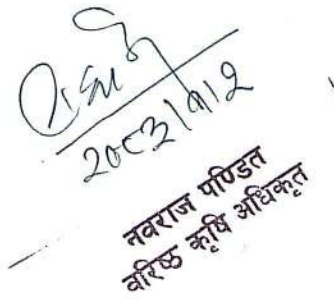 २०८३/१/२
नवराज पण्डित
वरिष्ठ कृषि अधिकृत